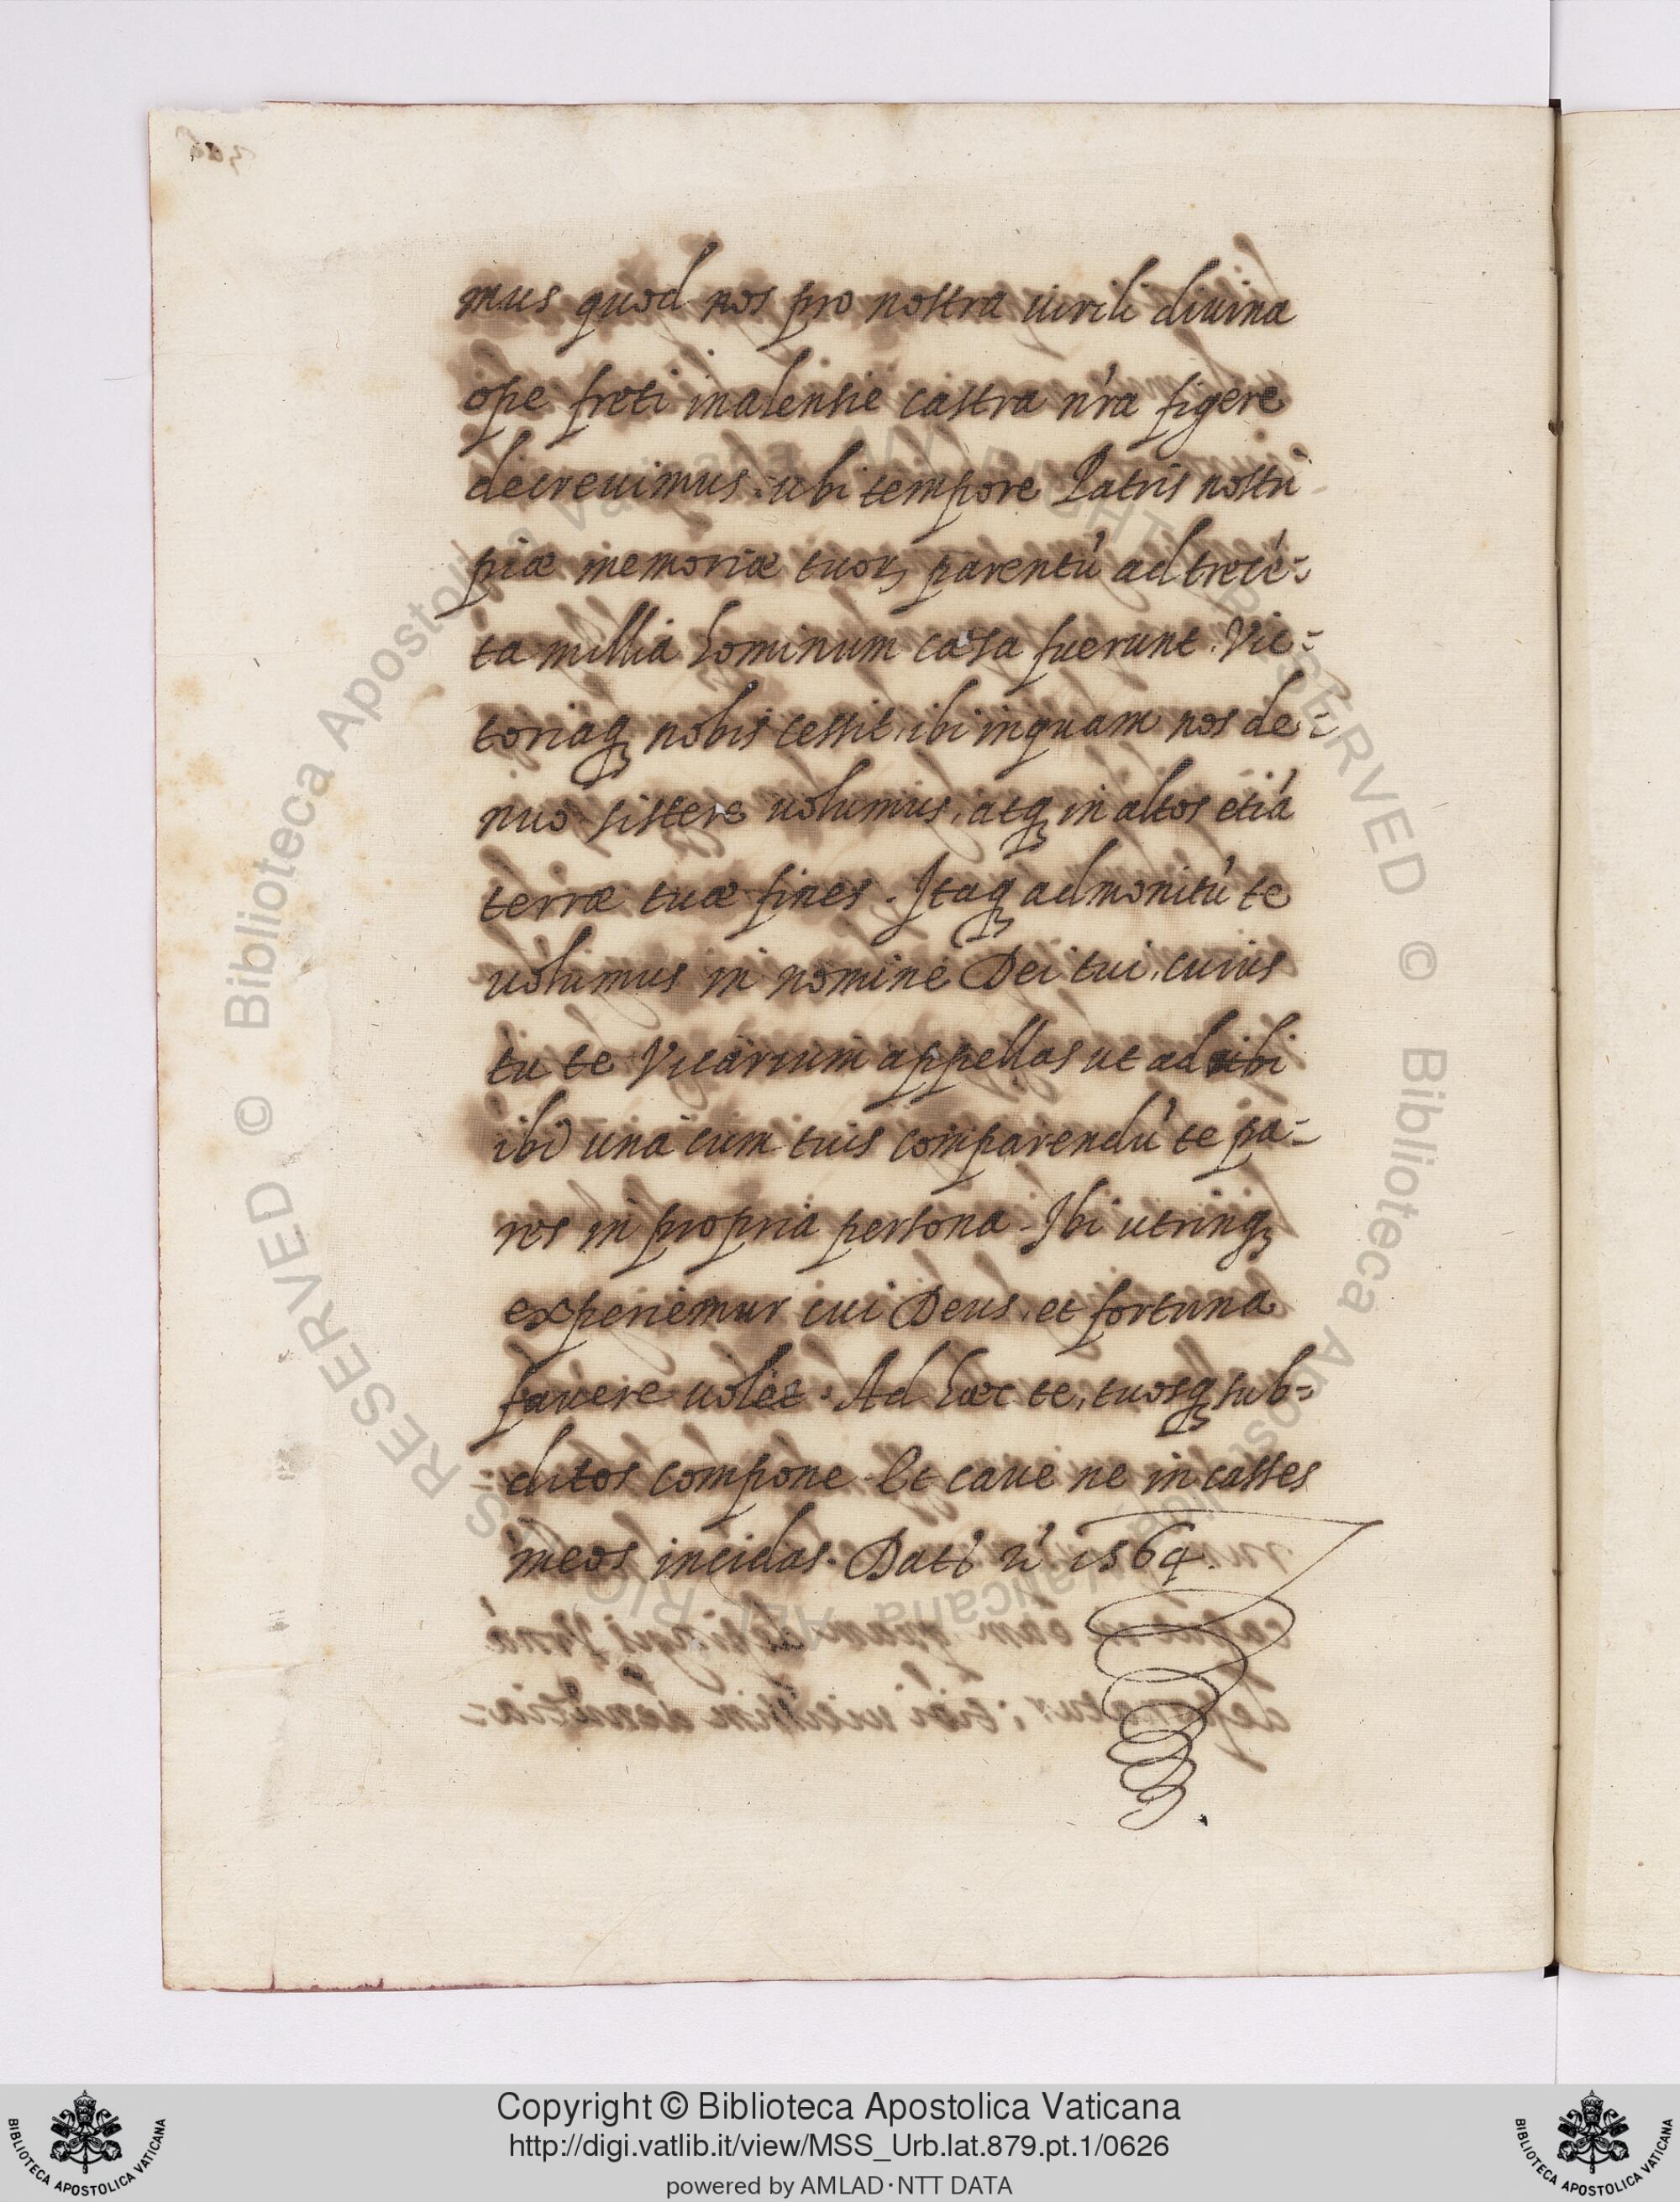 mus quod nos pro nostra uirili diuina
ope freti in alensie castra nra figere
decreuimus, ubi tempore Patris nostri
piæ memoriæ tuoꝝ parentú ad trecé=
ta millia hominum cæsa fuerunt. Vic=
toriaqꝫ nobis cessit, ibi inquam nos de=
nuo sistere uolumus, atqꝫ in altos etiá
terræ tuæ fines. Itaqꝫ admonitú te
uolumus in nomine Dei tui, cuius
tu te Vicarium appellas ut ad
ibi una cum tuis comparendú te pa=
res in propria persona. Ibi utrinqꝫ
experiemur cui Deus, et fortuna
fauere uolet. Ad hæc te, tuosqꝫ sub=
ditos compone. Et caue ne in casses
meos incidas. 1564.
Copyright © Biblioteca Apostolica Vaticana
http://digi.vatlib.it/view/MSS_Urb.lat.879.pt.1/0626
powered by AMLAD·NTT DATA
© Biblioteca Apostolica Vaticana ALL RIGHTS RESERVED
BIBLIOTECA APOSTOLICA VATICANA
BIBLIOTECA APOSTOLICA VATICANA